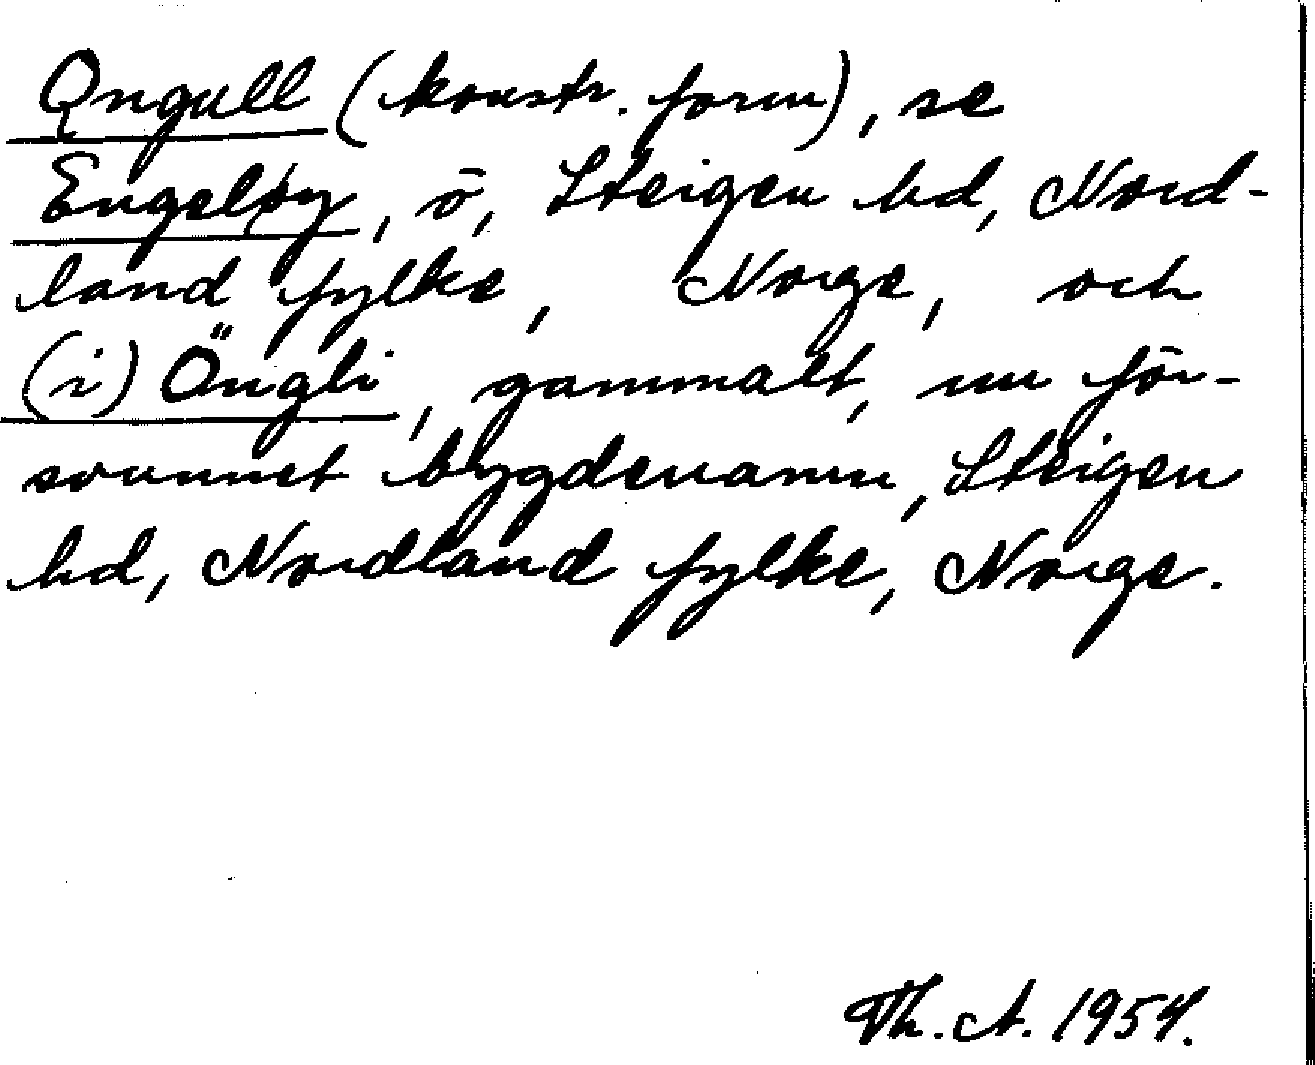 Ǫngull (konstr. form), se
Engeløy, ö, Steigen hd, Nord-
land fylke, Norge, och
(i) Öngli, gammalt, nu för-
svunnet bygdenamn, Steigen
hd, Nordland fylke, Norge.
Th. A. 1954.